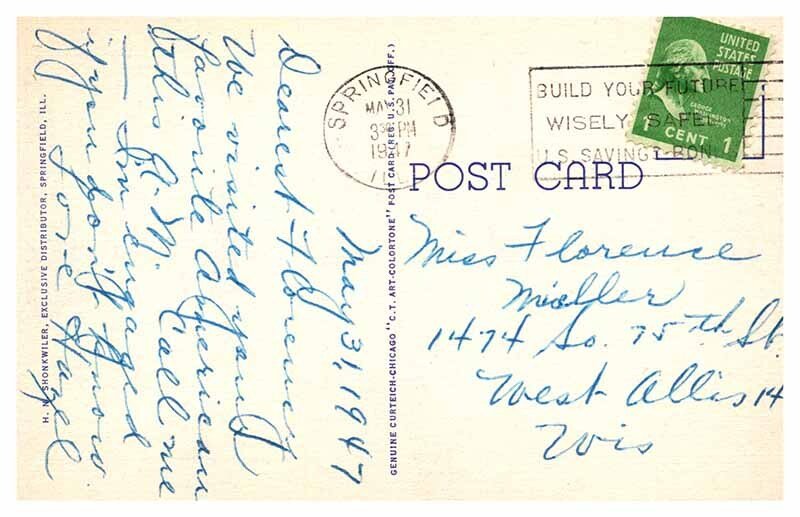 May 31, 1947
Dearest Florence
We visited your
favorite American
this A.M. Call me
— I'm engaged
if you don't know.
Love Hazel
H. N. SHONKWILER, EXCLUSIVE DISTRIBUTOR, SPRINGFIELD, ILL.
GENUINE CURTEICH-CHICAGO "C.T. ART-COLORTONE" POST CARD (REG. U.S. PAT. OFF.)
SPRINGFIELD
MAY 31
PM
1947
BUILD YOUR FUTURE
WISELY SAFELY
U.S. SAVINGS BONDS
UNITED
STATES
POSTAGE
GEORGE
WASHINGTON
1 CENT 1
POST CARD
Miss Florence
1474 So. 75th St.
West Allis 14
Wis